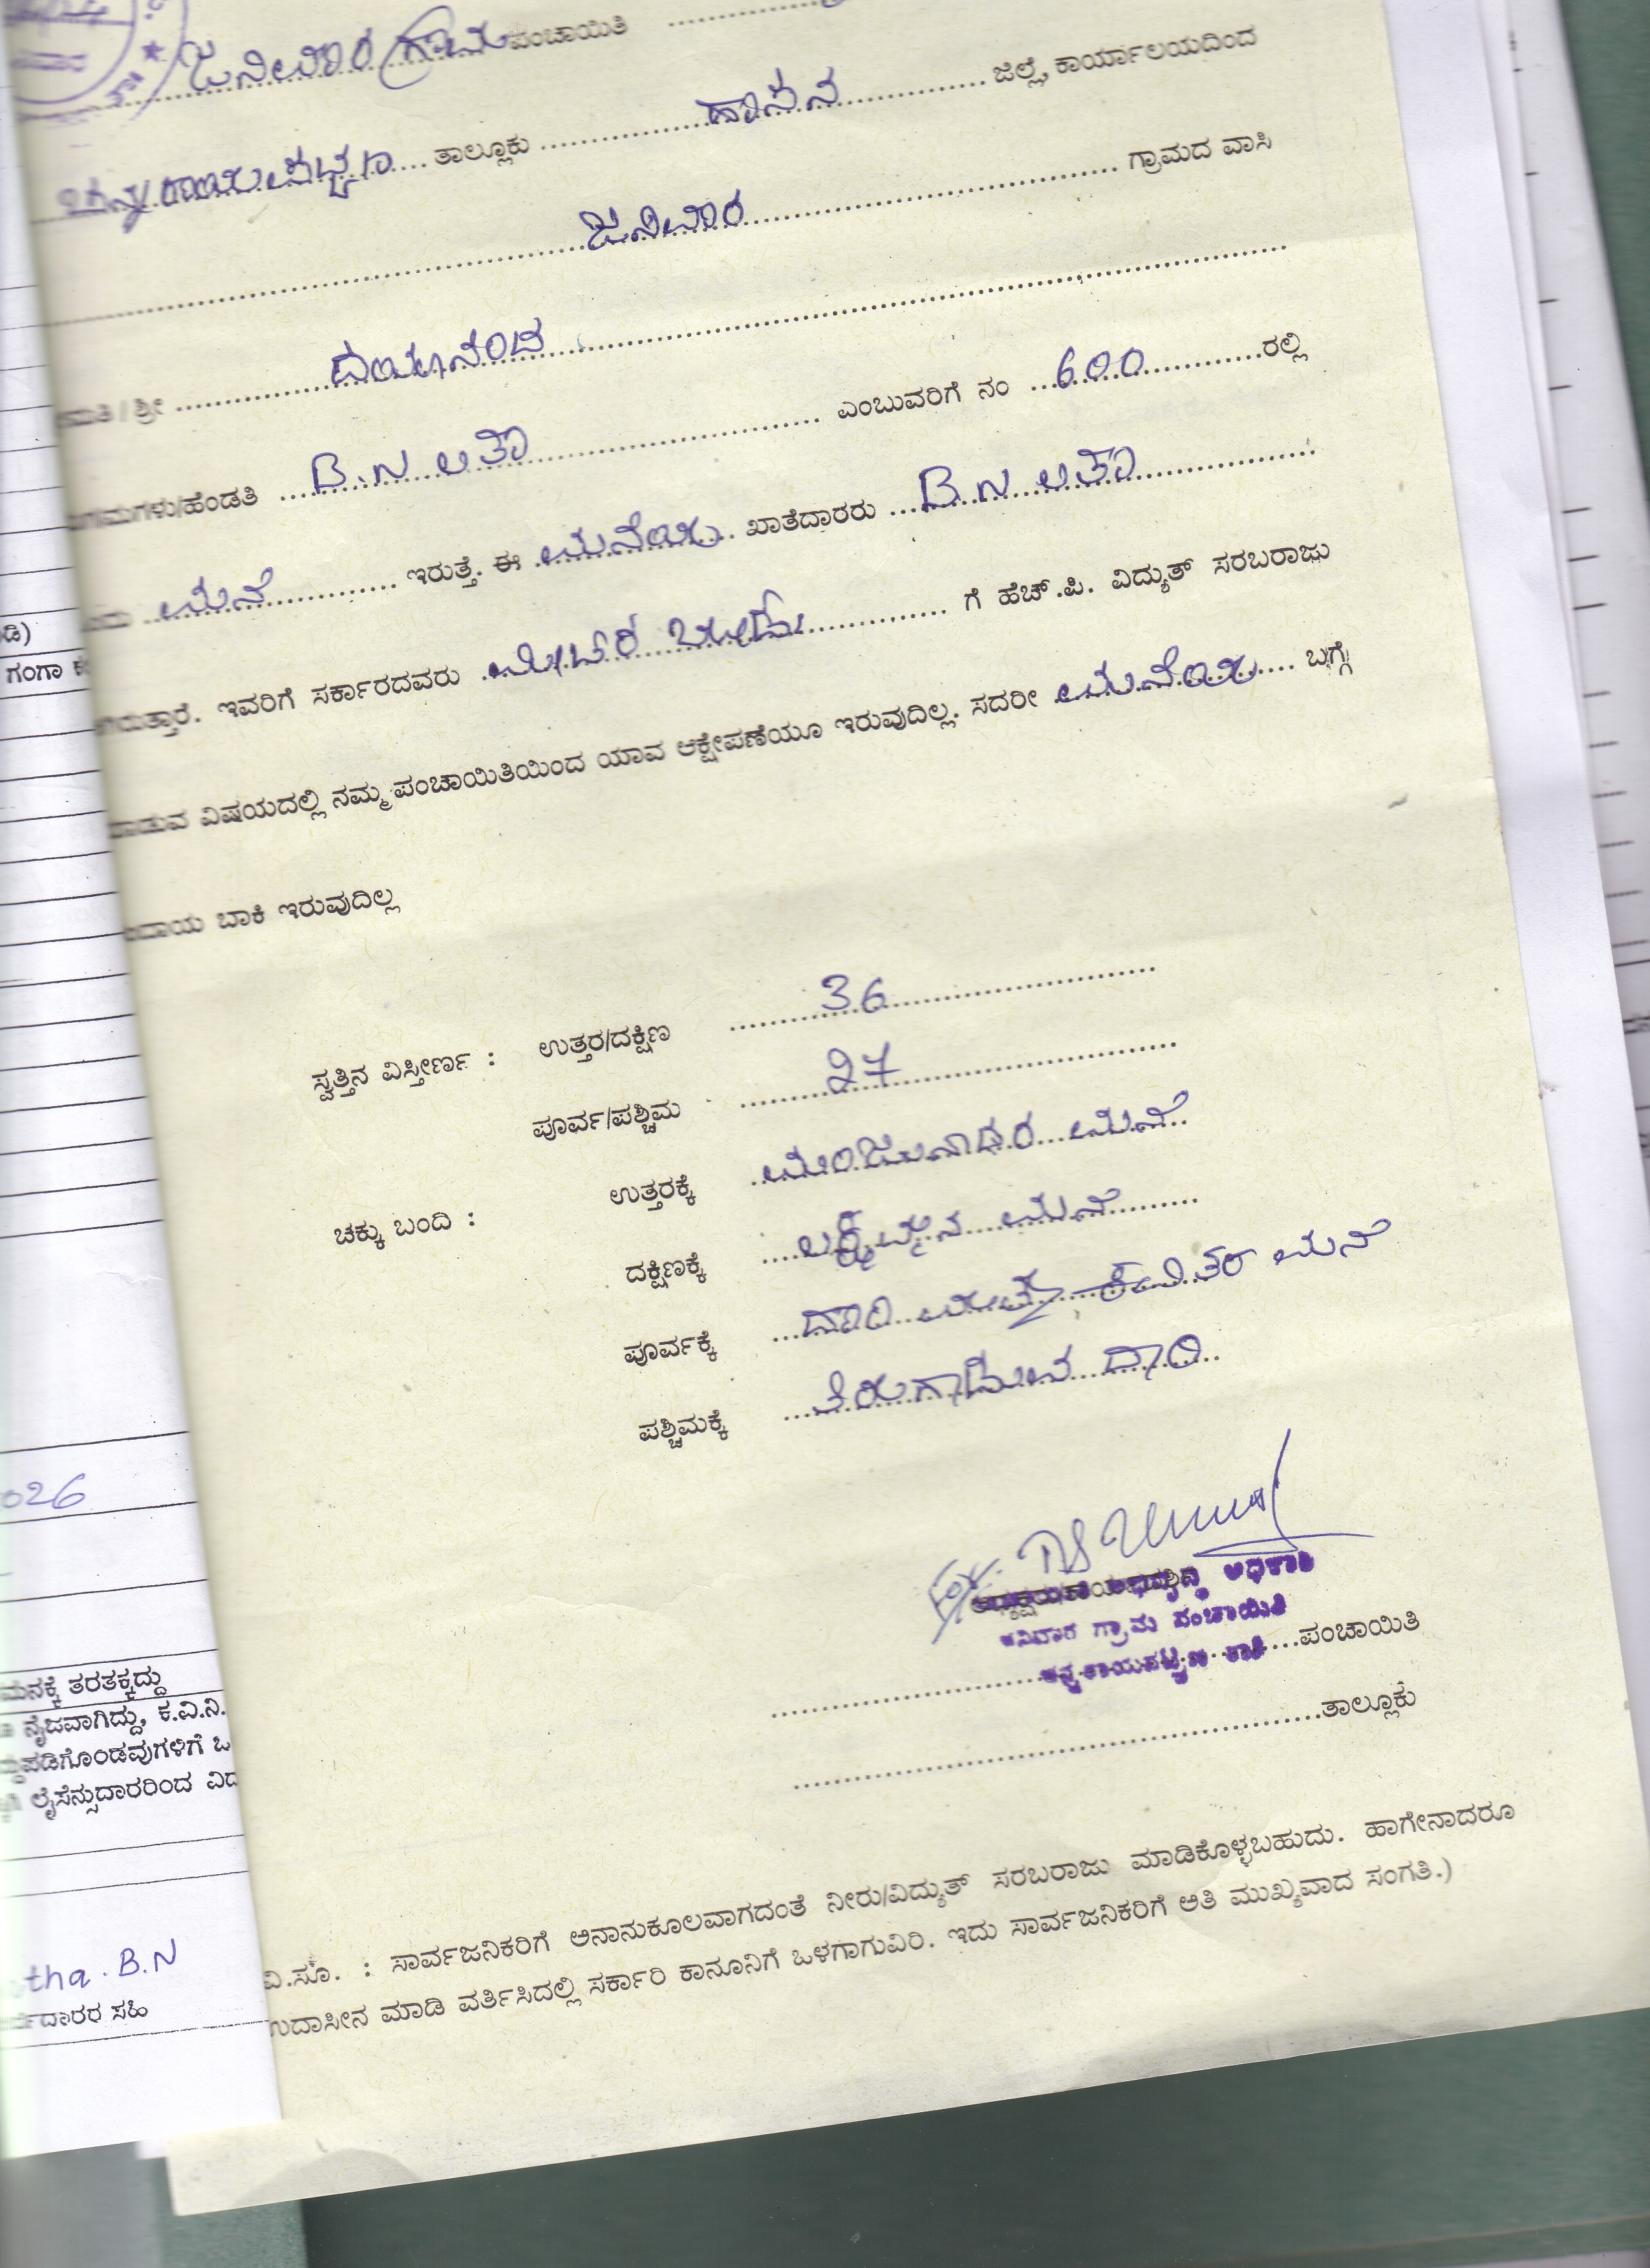 ಜನಿವಾರ ಗ್ರಾಮ ಪಂಚಾಯಿತಿ
ಚನ್ನರಾಯಪಟ್ಟಣ ತಾಲ್ಲೂಕು ಹಾಸನ ಜಿಲ್ಲೆ, ಕಾರ್ಯಾಲಯದಿಂದ
ಜನಿವಾರ ಗ್ರಾಮದ ವಾಸಿ
ಮತಿ / ಶ್ರೀ ದಯಾನಂದ
ಮಗಳು/ಹೆಂಡತಿ B.N ಲತಾ ಎಂಬುವರಿಗೆ ನಂ 600 ರಲ್ಲಿ
ಮನೆ ಇರುತ್ತೆ. ಈ ಮನೆಯ ಖಾತೆದಾರರು B.N ಲತಾ
ಗಿರುತ್ತಾರೆ. ಇವರಿಗೆ ಸರ್ಕಾರದವರು ಮೀಟರ್ ಬೋರ್ಡ್ ಗೆ ಹೆಚ್.ಪಿ. ವಿದ್ಯುತ್ ಸರಬರಾಜು
ಮಾಡುವ ವಿಷಯದಲ್ಲಿ ನಮ್ಮ ಪಂಚಾಯಿತಿಯಿಂದ ಯಾವ ಆಕ್ಷೇಪಣೆಯೂ ಇರುವುದಿಲ್ಲ. ಸದರೀ ಮನೆಯ ಬಗ್ಗೆ
ದಾಯ ಬಾಕಿ ಇರುವುದಿಲ್ಲ
ಸ್ವತ್ತಿನ ವಿಸ್ತೀರ್ಣ : ಉತ್ತರ/ದಕ್ಷಿಣ 36
ಪೂರ್ವ/ಪಶ್ಚಿಮ 27
ಚಕ್ಕು ಬಂದಿ : ಉತ್ತರಕ್ಕೆ ಮಂಜುನಾಥರ ಮನೆ
ದಕ್ಷಿಣಕ್ಕೆ ಮನೆ
ಪೂರ್ವಕ್ಕೆ ದಾರಿ ಮತ್ತು ಮನೆ
ಪಶ್ಚಿಮಕ್ಕೆ ತಿರುಗಾಡುವ ದಾರಿ
ಅಭಿವೃದ್ಧಿ ಅಧಿಕಾರಿ
ಜನಿವಾರ ಗ್ರಾಮ ಪಂಚಾಯಿತಿ
ಪಂಚಾಯಿತಿ
ಚನ್ನರಾಯಪಟ್ಟಣ ತಾಕಿ
ತಾಲ್ಲೂಕು
ವಿ.ಸೂ. : ಸಾರ್ವಜನಿಕರಿಗೆ ಅನಾನುಕೂಲವಾಗದಂತೆ ನೀರು/ವಿದ್ಯುತ್ ಸರಬರಾಜು ಮಾಡಿಕೊಳ್ಳಬಹುದು. ಹಾಗೇನಾದರೂ
ಉದಾಸೀನ ಮಾಡಿ ವರ್ತಿಸಿದಲ್ಲಿ ಸರ್ಕಾರಿ ಕಾನೂನಿಗೆ ಒಳಗಾಗುವಿರಿ. ಇದು ಸಾರ್ವಜನಿಕರಿಗೆ ಅತಿ ಮುಖ್ಯವಾದ ಸಂಗತಿ.)
ಡಿ)
ಗಂಗಾ ಕ
026
ಮನಕ್ಕೆ ತರತಕ್ಕದ್ದು
ನೈಜವಾಗಿದ್ದು, ಕ.ವಿ.ನಿ.
ದ್ದುಪಡಿಗೊಂಡವುಗಳಿಗೆ ಒ
ಲೈಸೆನ್ಸುದಾರರಿಂದ ವಿದ
tha. B.N
ದಾರರ ಸಹಿ